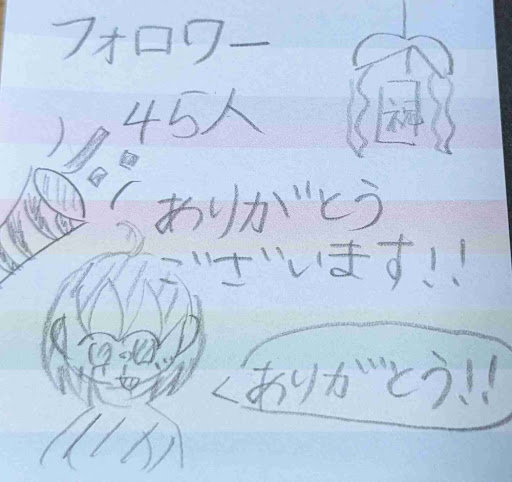 フォロワー
45人
ありがとう
ございます!!
ありがとう!!